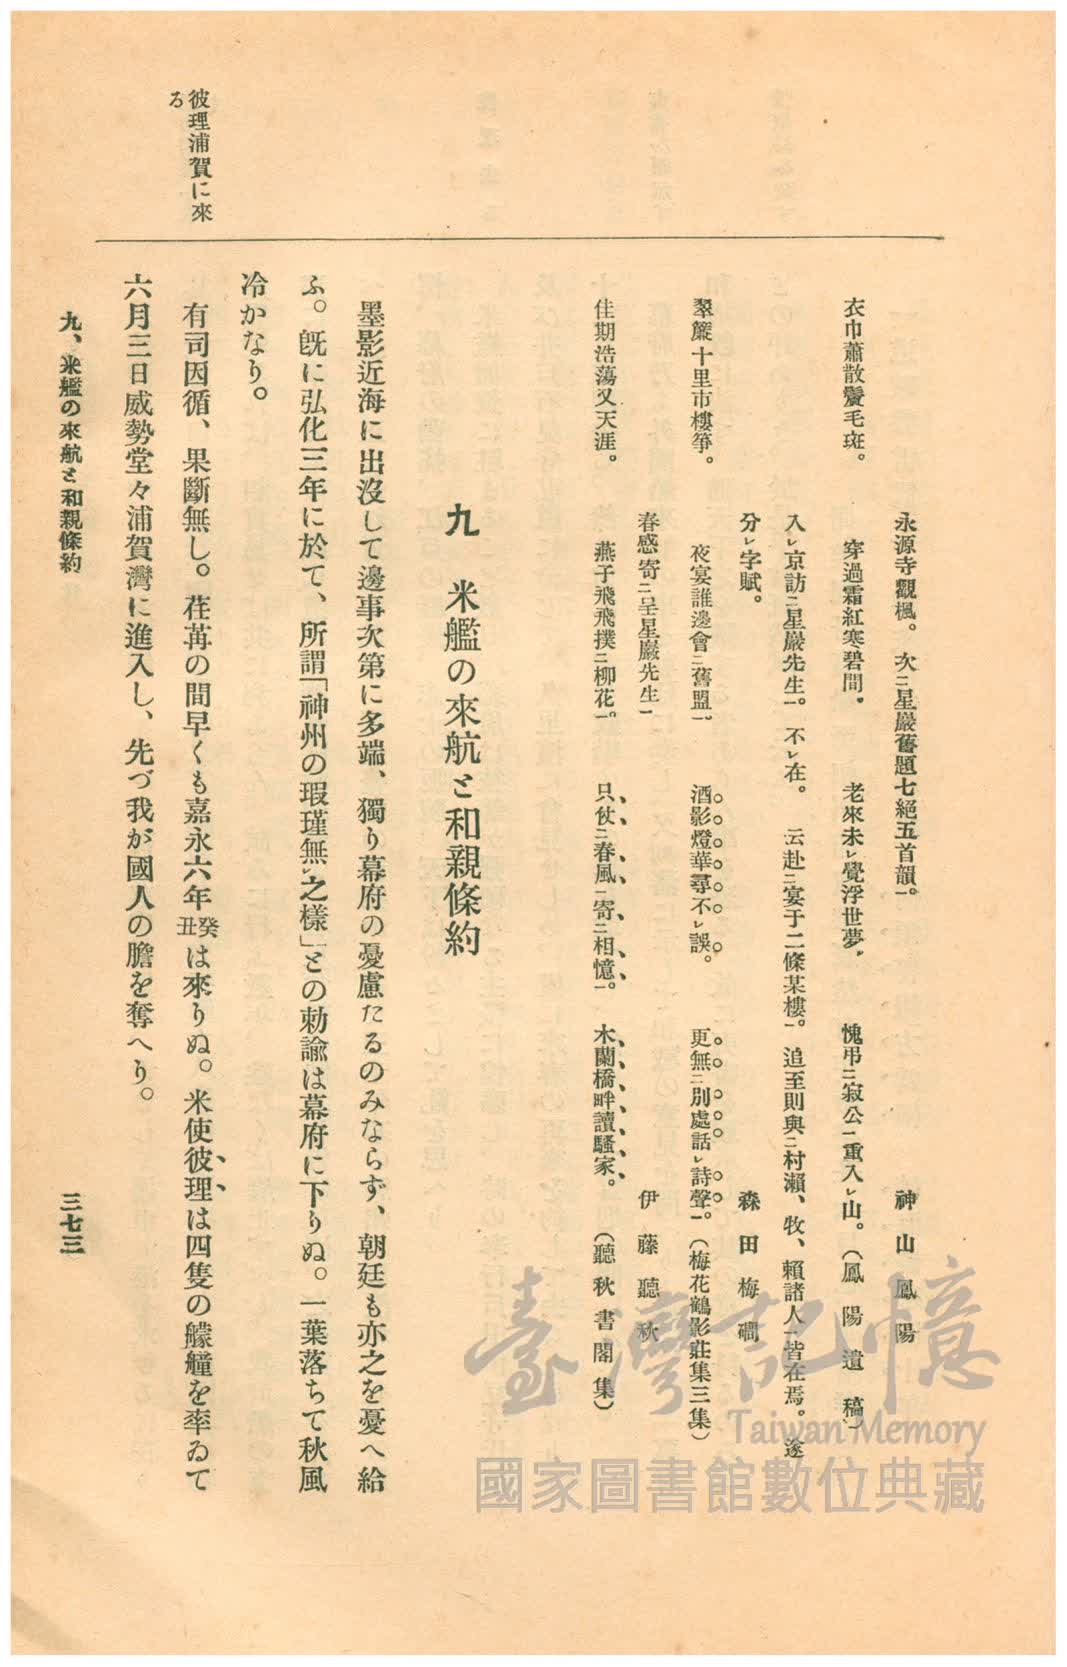 彼理浦賀に來
る
永源寺觀楓。次ニ星巖舊題七絕五首韻一。　神山鳳陽
衣巾蕭散鬢毛斑。　穿過霜紅寒碧間。　老來未レ覺浮世夢。　愧弔ニ寂公一重入レ山。（鳳陽遺稿）
入レ京訪ニ星巖先生一。不レ在。　云赴ニ宴于二條某樓一。追至則與ニ村瀬、牧、賴諸人一皆在焉。遂
分レ字賦。　森田梅磵
翠簾十里市樓箏。　夜宴誰邊會ニ舊盟一。　酒影燈華尋不レ誤。　更無ニ別處話レ詩聲一。（梅花鶴影莊集三集）
春感寄ニ呈星巖先生一　伊藤聽秋
佳期浩蕩又天涯。　燕子飛飛撲ニ柳花一。　只仗ニ春風一寄ニ相憶一。　木蘭橋畔讀騷家。（聽秋書閣集）
九　米艦の來航と和親條約
墨影近海に出沒して邊事次第に多端、獨り幕府の憂慮たるのみならず、朝廷も亦之を憂へ給
ふ。旣に弘化三年に於て、所謂「神州の瑕瑾無レ之樣」との勅諭は幕府に下りぬ。一葉落ちて秋風
冷かなり。
有司因循、果斷無し。荏苒の間早くも嘉永六年癸丑は來りぬ。米使彼理は四隻の艨艟を率ゐて
六月三日威勢堂々浦賀灣に進入し、先づ我が國人の膽を奪へり。
九、米艦の來航と和親條約
三七三
臺灣記憶
Taiwan Memory
國家圖書館數位典藏